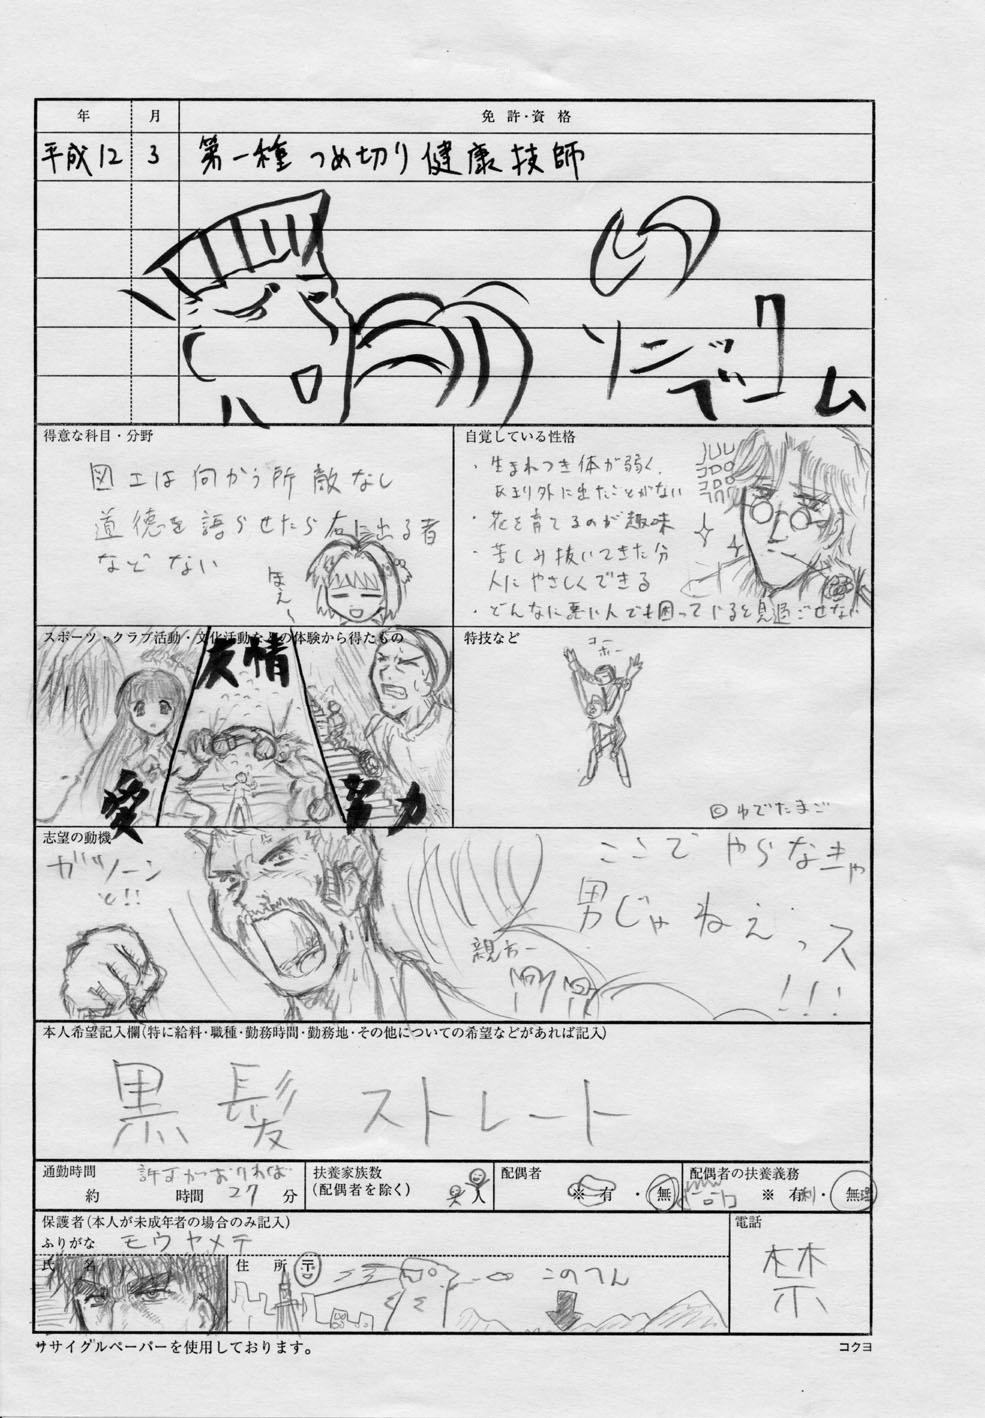 年 月 免許・資格
平成12 3 第一種つめ切り健康技師
ハロ
ソニックブーム
得意な科目・分野
図工は向かう所敵なし
道徳を語らせたら右に出る者
などない
ほぇ〜
自覚している性格
・生まれつき体が弱く、
あまり外に出たことがない
・花を育てるのが趣味
・苦しみ抜いてきた分
人にやさしくできる
・どんなに悪い人でも困っていると見過ごせない
スポーツ・クラブ活動・文化活動などの体験から得たもの
友情
愛
努力
特技など
コー
ホー
©ゆでたまご
志望の動機
ガツーン
と!!
親方ー
ここでやらなきゃ
男じゃねぇっス
!!!
本人希望記入欄(特に給料・職種・勤務時間・勤務地・その他についての希望などがあれば記入)
黒髪ストレート
通勤時間 許可がおりれば
約 時間 27 分
扶養家族数
(配偶者を除く) 人
配偶者
※ 有 ・ 無
配偶者の扶養義務
※ 有 ・ 無
保護者(本人が未成年者の場合のみ記入)
ふりがな モウヤメテ
氏 名
住 所 〒
このへん
電話
禁
ササイグルペーパーを使用しております。
コクヨ